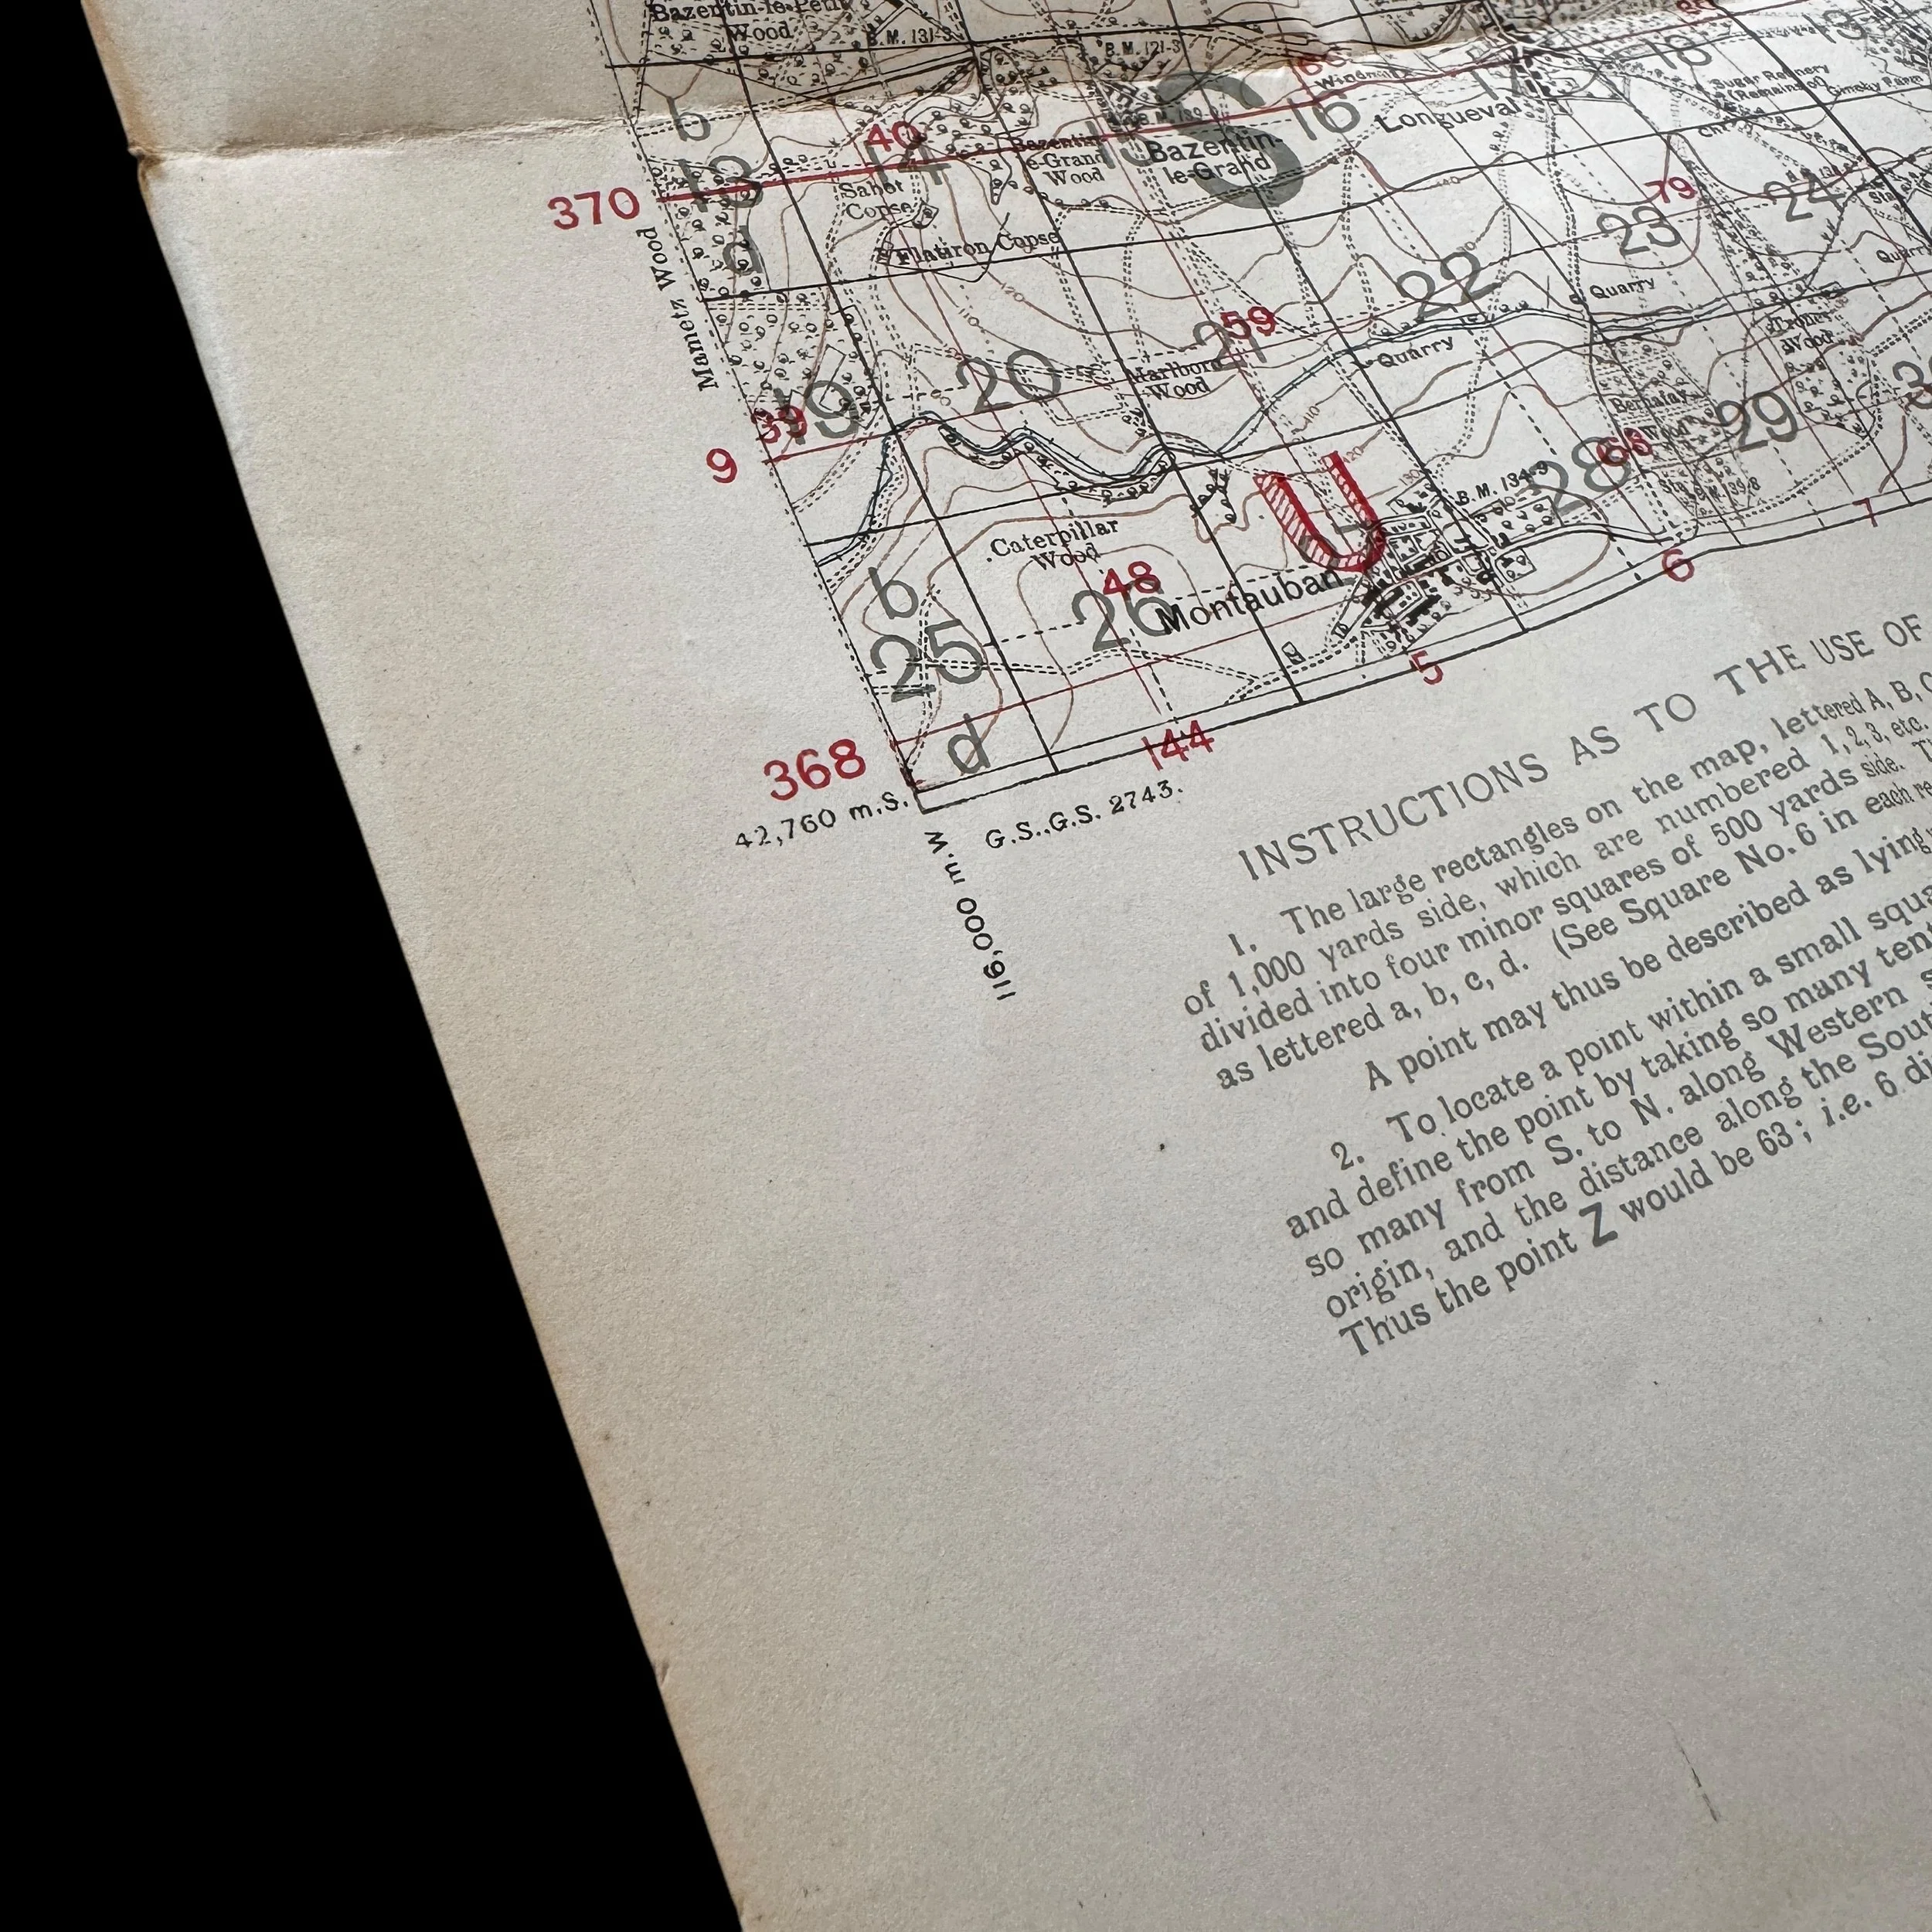 Bazentin-le-Petit
Wood
B.M. 131·3
B.M. 121·3
Windmill
18
13
Sugar Refinery
(Remains of)
Ginchy Farm
b
40
14
S
16
17
Longueval
13
Bazentin-
le-Grand
Wood
15
Bazentin-
le-Grand
370
Sabot
Copse
79
24
23
d
Flatiron Copse
Mametz Wood
120
110
22
Quarry
Quarry
59
21
Quarry
Trones
Wood
20
Marlboro
Wood
39
19
9
Bernafay
Wood
29
68
28
U
B.M. 134·9
Caterpillar
Wood
48
26
Montauban
b
25
7
6
5
d
144
368
42,760 m.S.
G.S.,G.S. 2743.
116,000 m.W
INSTRUCTIONS AS TO THE USE OF
1. The large rectangles on the map, lettered A, B, C
of 1,000 yards side, which are numbered 1, 2, 3, etc.
divided into four minor squares of 500 yards side.
as lettered a, b, c, d. (See Square No. 6 in each
A point may thus be described as lying
2. To locate a point within a small
and define the point by taking so many
so many from S. to N. along Western
origin, and the distance along the
Thus the point Z would be 63; i.e. 6